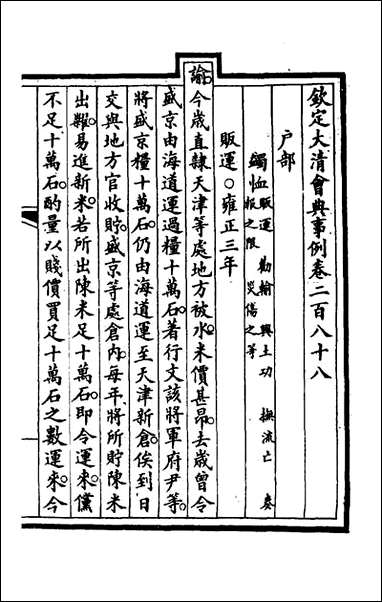 欽定大清會典事例卷二百八十八
戶部
蠲恤 販運 勸輸 興土功 撫流亡 奏
報之限 災傷之等
販運○雍正三年
諭今歲直隸天津等處地方被水米價甚昂去歲曾令
盛京由海道運過糧十萬石著行文該將軍府尹等
將盛京糧十萬石仍由海道運至天津新倉俟到日
交與地方官收貯盛京等處倉內每年將所貯陳米
出糶易進新米若所出陳米足十萬石即令運來儻
不足十萬石酌量以賤價買足十萬石之數運來今